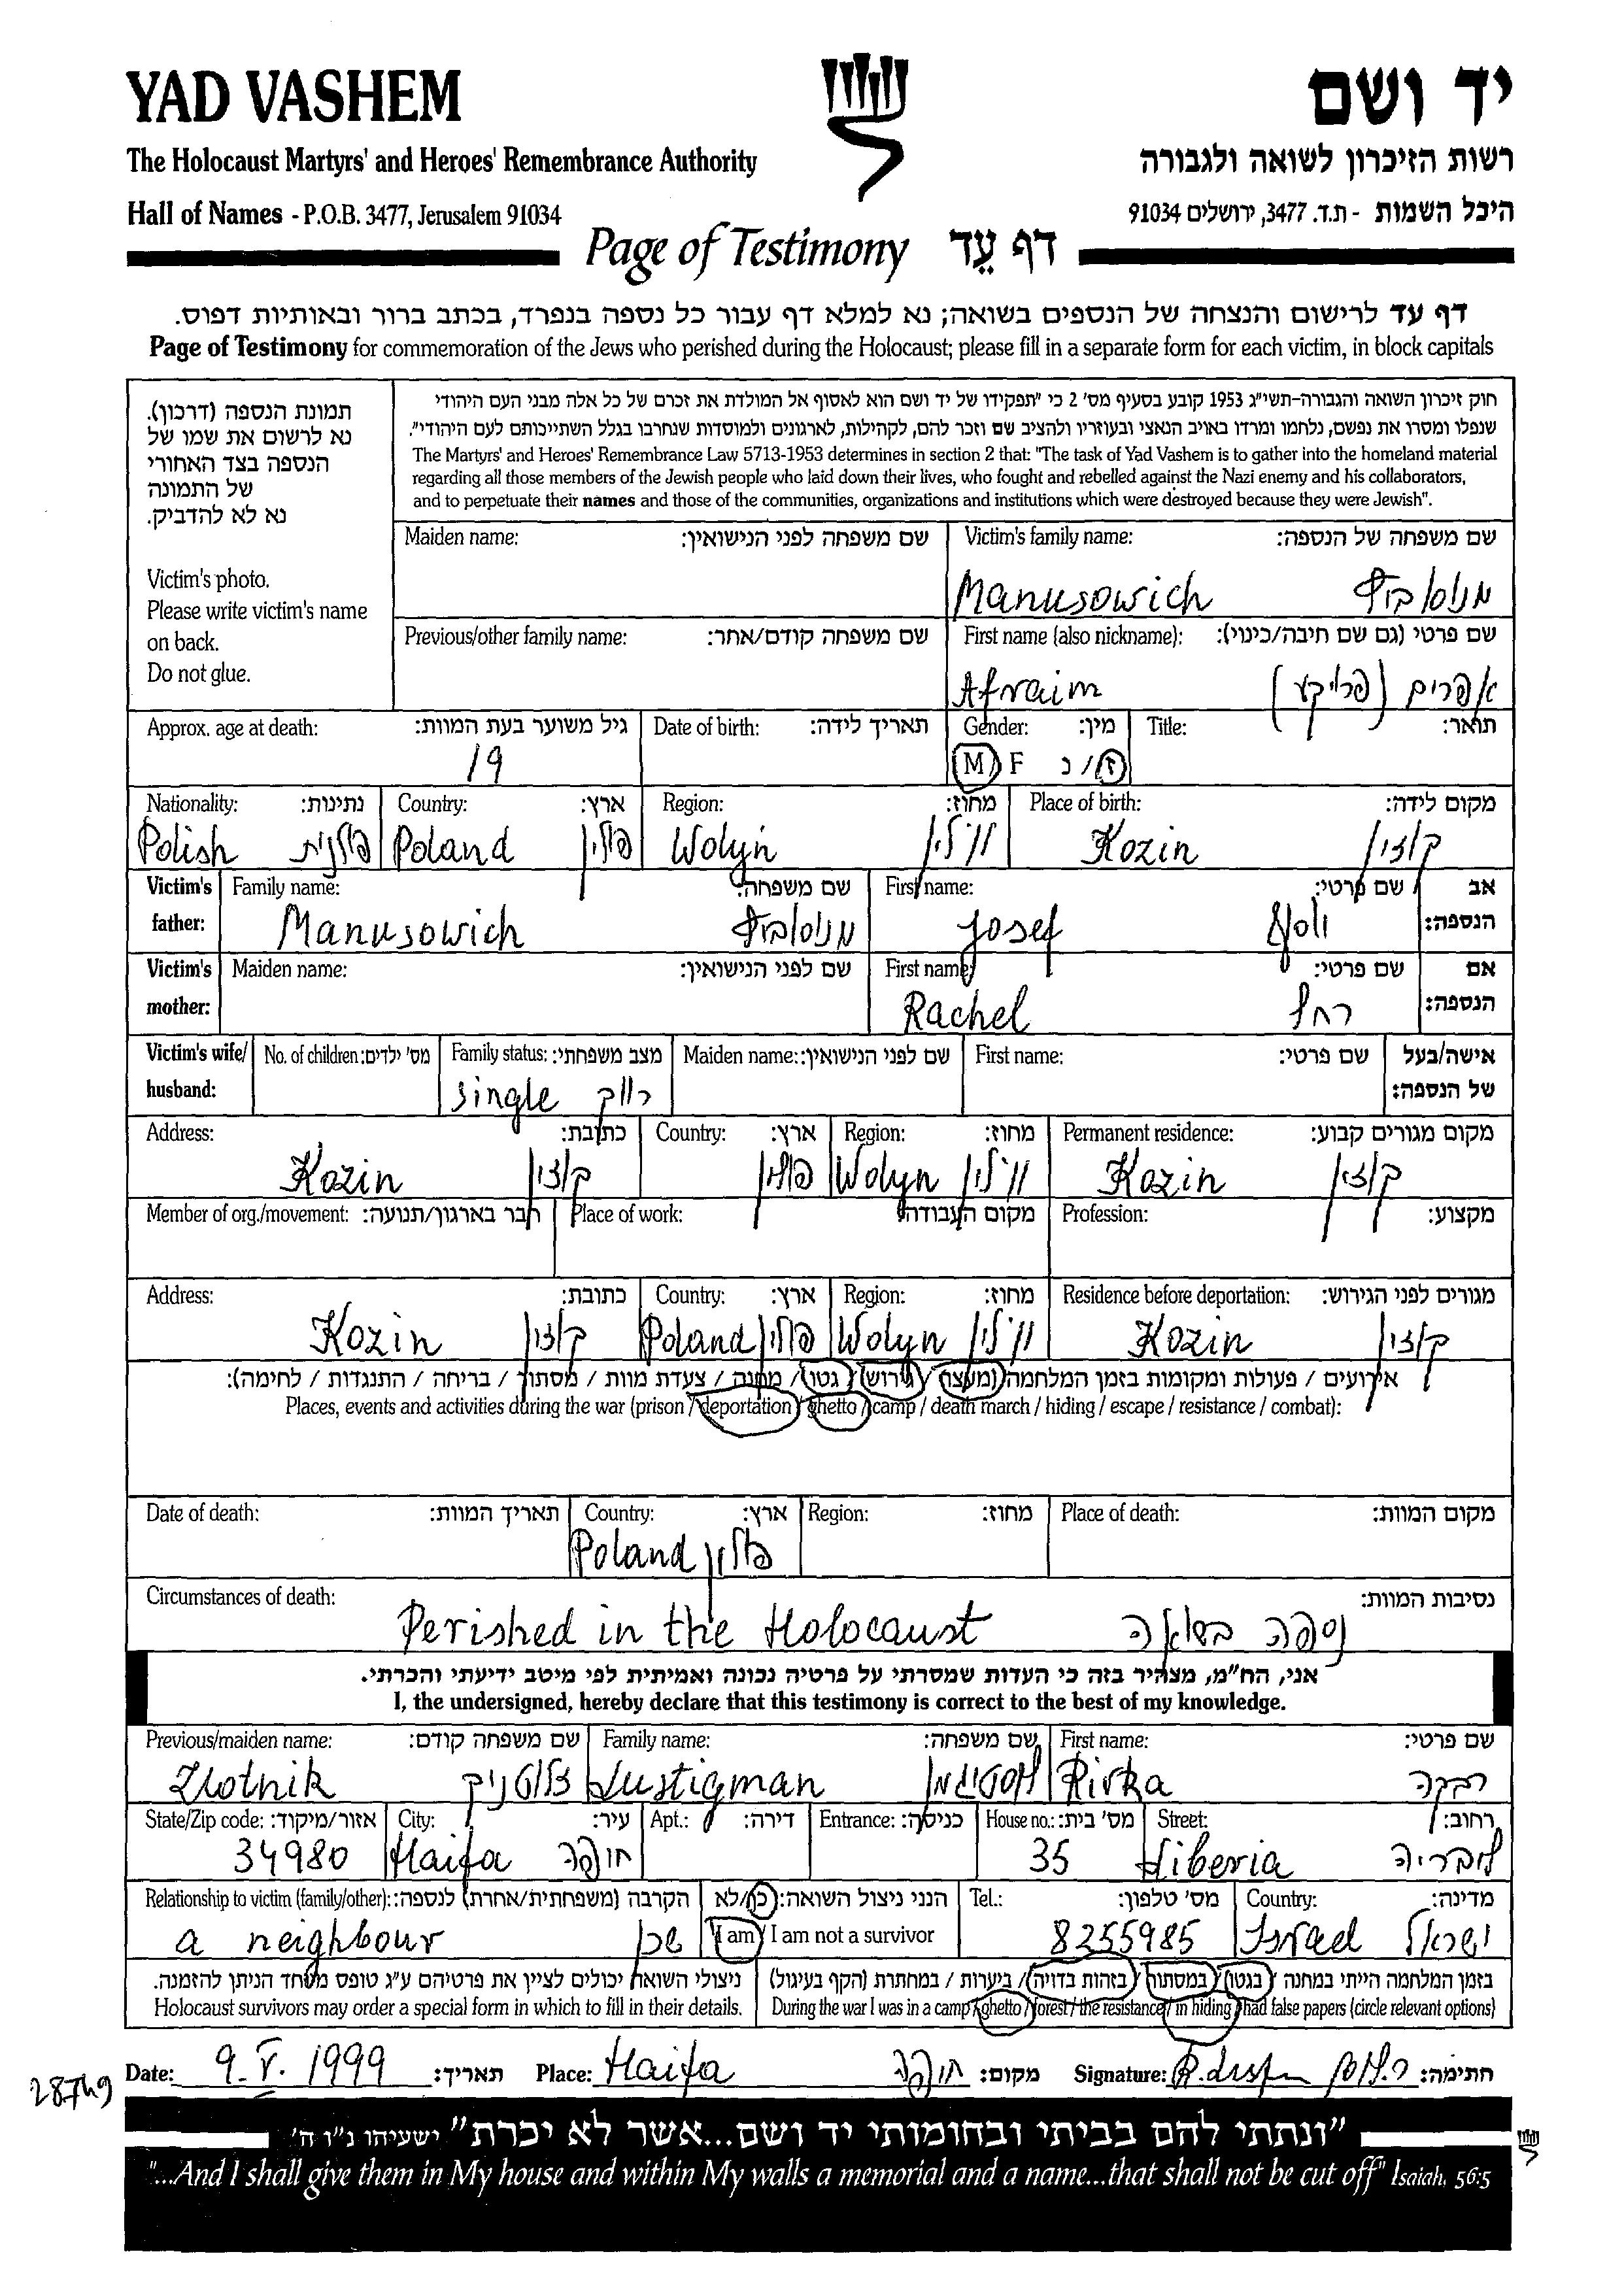 YAD VASHEM
יד ושם
The Holocaust Martyrs' and Heroes' Remembrance Authority
רשות הזיכרון לשואה ולגבורה
Hall of Names - P.O.B. 3477, Jerusalem 91034
היכל השמות - ת.ד. 3477, ירושלים 91034
Page of Testimony דף עֵד
דף עד לרישום והנצחה של הנספים בשואה; נא למלא דף עבור כל נספה בנפרד, בכתב ברור ובאותיות דפוס.
Page of Testimony for commemoration of the Jews who perished during the Holocaust; please fill in a separate form for each victim, in block capitals
תמונת הנספה (דרכון).
נא לרשום את שמו של
הנספה בצד האחורי
של התמונה
נא לא להדביק.
Victim's photo.
Please write victim's name
on back.
Do not glue.
חוק זיכרון השואה והגבורה-תשי"ג 1953 קובע בסעיף מס' 2 כי "תפקידו של יד ושם הוא לאסוף אל המולדת את זכרם של כל אלה מבני העם היהודי
שנפלו ומסרו את נפשם, נלחמו ומרדו באויב הנאצי ובעוזריו ולהציב שם וזכר להם, לקהילות, לארגונים ולמוסדות שנחרבו בגלל השתייכותם לעם היהודי".
The Martyrs' and Heroes' Remembrance Law 5713-1953 determines in section 2 that: "The task of Yad Vashem is to gather into the homeland material
regarding all those members of the Jewish people who laid down their lives, who fought and rebelled against the Nazi enemy and his collaborators,
and to perpetuate their names and those of the communities, organizations and institutions which were destroyed because they were Jewish".
Maiden name: שם משפחה לפני הנישואין: Victim's family name: שם משפחה של הנספה:
Manusowich מנוסוביץ
Previous/other family name: שם משפחה קודם/אחר: First name (also nickname): שם פרטי (גם שם חיבה/כינוי):
Afraim אפרים
Approx. age at death: גיל משוער בעת המוות: Date of birth: תאריך לידה: Gender: מין: Title: תואר:
19 M F ז/נ
Nationality: נתינות: Country: ארץ: Region: מחוז: Place of birth: מקום לידה:
Polish פולנית Poland פולין Wolyń ווילין Kozin קוזין
Victim's father: Family name: שם משפחה: First name: שם פרטי: אב הנספה:
Manusowich מנוסוביץ Josef יוסף
Victim's mother: Maiden name: שם לפני הנישואין: First name: שם פרטי: אם הנספה:
Rachel רחל
Victim's wife/husband: No. of children: מס' ילדים: Family status: מצב משפחתי: Maiden name: שם לפני הנישואין: First name: שם פרטי: אישה/בעל של הנספה:
single רווק
Address: כתובת: Country: ארץ: Region: מחוז: Permanent residence: מקום מגורים קבוע:
Kozin קוזין פולין Wolyn ווילין Kozin קוזין
Member of org./movement: חבר בארגון/תנועה: Place of work: מקום העבודה: Profession: מקצוע:
Address: כתובת: Country: ארץ: Region: מחוז: Residence before deportation: מגורים לפני הגירוש:
Kozin קוזין Poland פולין Wolyn ווילין Kozin קוזין
אירועים / פעולות ומקומות בזמן המלחמה (מעצר / גירוש / גטו / מחנה / צעדת מוות / מסתור / בריחה / התנגדות / לחימה):
Places, events and activities during the war (prison / deportation / ghetto / camp / death march / hiding / escape / resistance / combat):
Date of death: תאריך המוות: Country: ארץ: Region: מחוז: Place of death: מקום המוות:
Poland פולין
Circumstances of death: נסיבות המוות:
Perished in the Holocaust נספה בשואה
אני, הח"מ, מצהיר בזה כי העדות שמסרתי על פרטיה נכונה ואמיתית לפי מיטב ידיעתי והכרתי.
I, the undersigned, hereby declare that this testimony is correct to the best of my knowledge.
Previous/maiden name: שם משפחה קודם: Family name: שם משפחה: First name: שם פרטי:
Zlotnik צלוטניק Lustigman לוסטיגמן Rivka רבקה
State/Zip code: אזור/מיקוד: City: עיר: Apt.: דירה: Entrance: כניסה: House no.: מס' בית: Street: רחוב:
34980 Haifa חיפה 35 Liberia ליבריה
Relationship to victim (family/other): הקרבה (משפחתית/אחרת) לנספה: הנני ניצול השואה: כן/לא Tel.: מס' טלפון: Country: מדינה:
a neighbour שכן I am / I am not a survivor 8255985 Israel ישראל
ניצולי השואה יכולים לציין את פרטיהם ע"ג טופס מיוחד הניתן להזמנה. בזמן המלחמה הייתי במחנה / בגטו / במסתור / בזהות בדויה / ביערות / במחתרת (הקף בעיגול)
Holocaust survivors may order a special form in which to fill in their details. During the war I was in a camp / ghetto / forest / the resistance / in hiding / had false papers (circle relevant options)
Date: 9.V.1999 תאריך: Place: Haifa חיפה מקום: Signature: חתימה:
"ונתתי להם בביתי ובחומותי יד ושם...אשר לא יכרת" ישעיהו נ"ו ה'
"...And I shall give them in My house and within My walls a memorial and a name...that shall not be cut off" Isaiah, 56:5